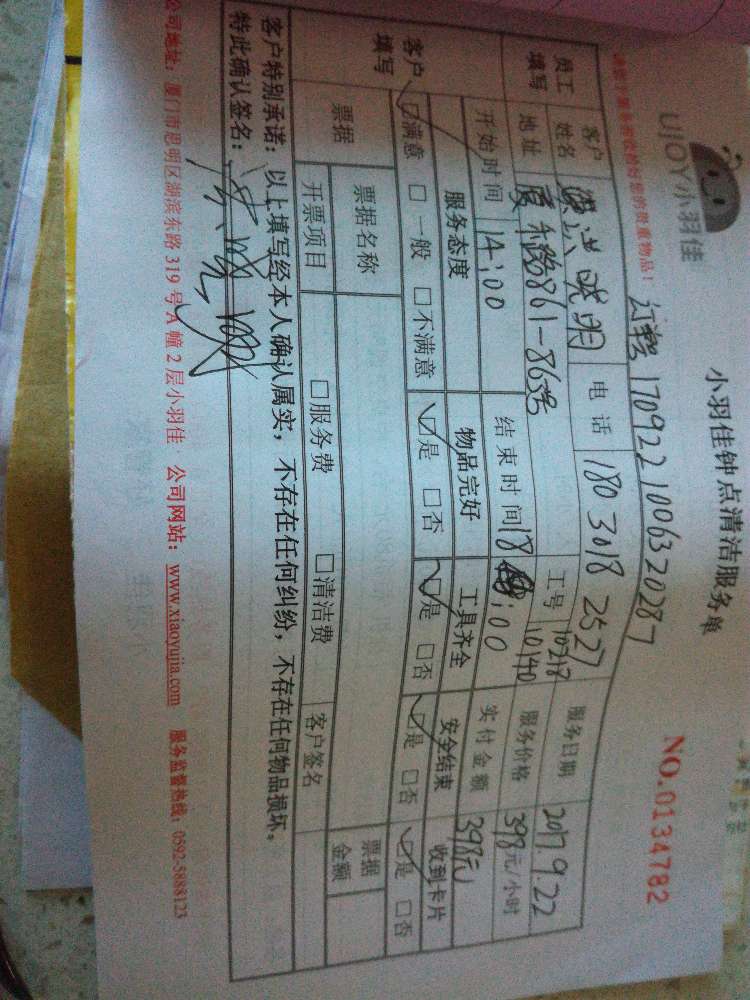 UJOY小羽佳
小羽佳钟点清洁服务单
NO.0134782
1709221006320287
员工填写 客户姓名 洪晓明 电话 180 3018 2527 工号 10218 10140 服务日期 2017.9.22
地址 861-863号 服务价格 398元/小时
开始时间 14:00 结束时间 18:00 实付金额 398元
客户填写 服务态度 物品完好 工具齐全 安全结束 收到卡片
☑满意 □一般 □不满意 ☑是 □否 ☑是 □否 ☑是 □否 ☑是 □否
票据: 票据名称 票据金额
开票项目 □服务费 □清洁费 客户签名
客户特别承诺：以上填写经本人确认属实，不存在任何纠纷，不存在任何物品损坏。
特此确认签名：
公司地址：厦门市思明区湖滨东路 319 号 A 幢 2 层小羽佳 公司网站：www.xiaoyujia.com 服务监督热线：0592-5888123